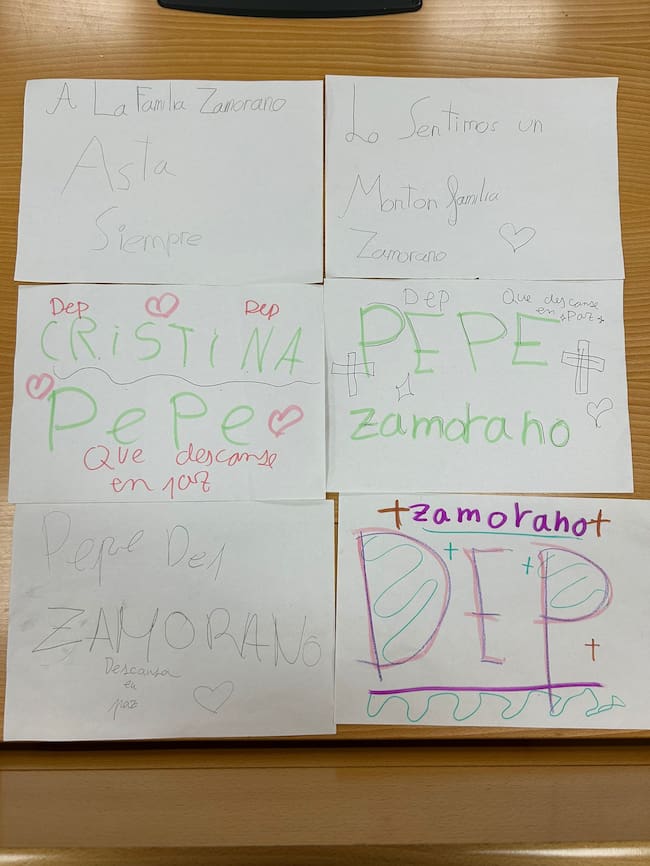 A La Familia Zamorano
Asta
Siempre
Lo Sentimos un
Monton familia
Zamorano
Dep Dep
CRiSTiNA
PePe
Que descanse
en paz
Dep
Que descanse
en paz
PEPE
zamorano
Pepe Del
ZAMORANO
Descansa
en
paz
zamorano
DEP